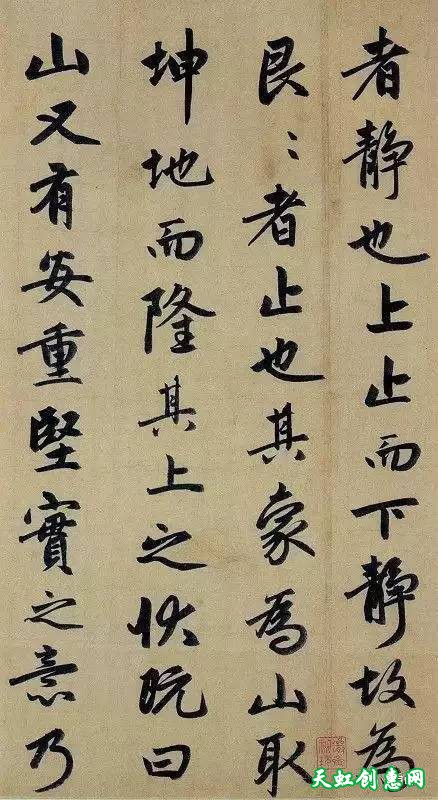 者静也上止而下静故為
艮〻者止也其象為山取
坤地而隆其上之状既曰
山又有安重堅實之意乃
天虹创惠网